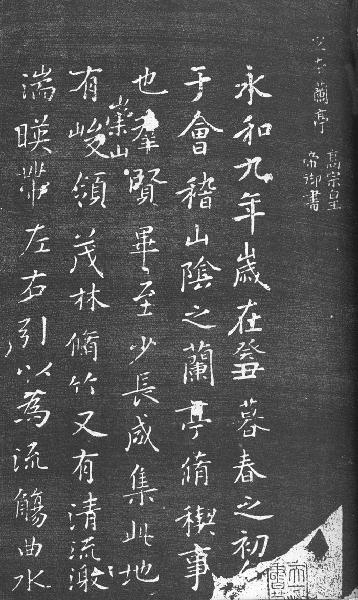 高宗皇
帝御書
永和九年歲在癸丑暮春之初會
于會稽山陰之蘭亭脩稧事
也羣賢畢至少長咸集此地
有崇山峻領茂林脩竹又有清流激
湍暎帶左右引以為流觴曲水